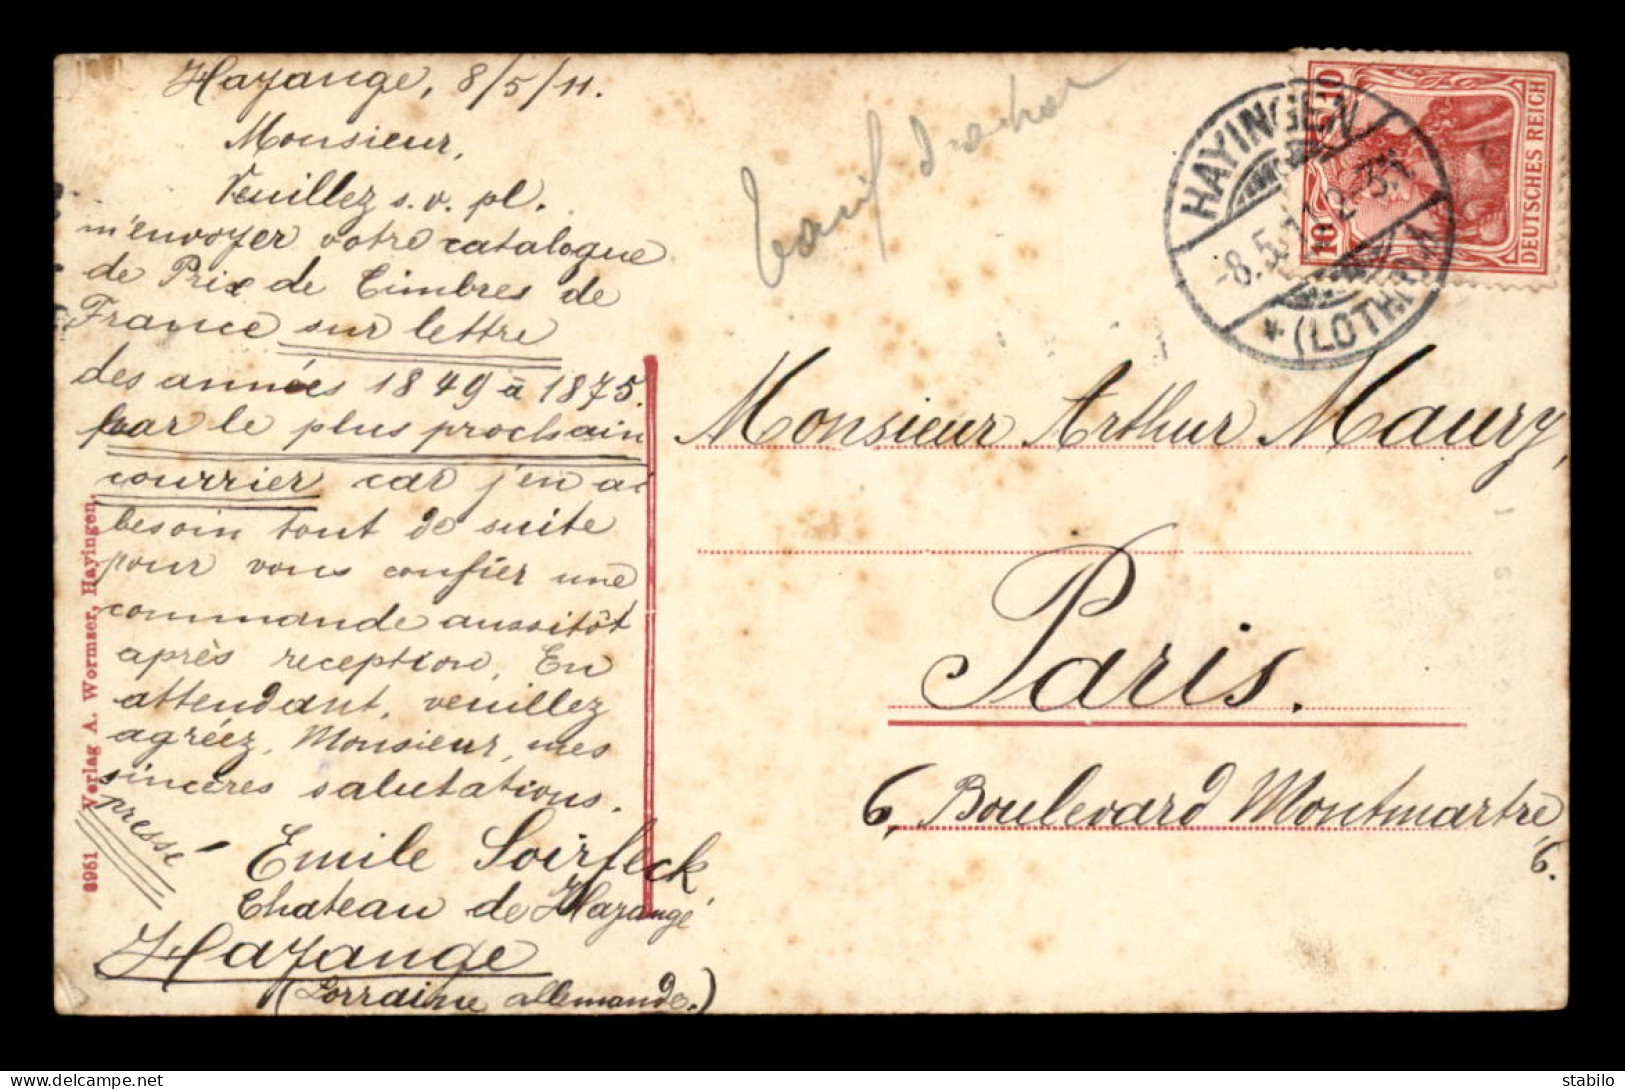 Hayange, 8/5/11.
Monsieur,
Veuillez s. v. pl.
m'envoyer votre catalogue
de Prix de Timbres de
France sur lettre
des années 1849 à 1875.
par le plus prochain
courrier car j'en ai
besoin tout de suite
pour vous confier une
commande aussitôt
après reception. En
attendant, veuillez
agréez, Monsieur, mes
sincères salutations.
pressé
Emile Soirfeck
Chateau de Hayange
Hayange
(Lorraine allemande.)
3951 Verlag A. Wormser, Hayingen.
10 10
DEUTSCHES REICH
HAYINGEN
-8.5.11.2-3N.
* (LOTHR.)
Monsieur Arthur Maury,
Paris.
6, Boulevard Montmartre,
6.
stabilo